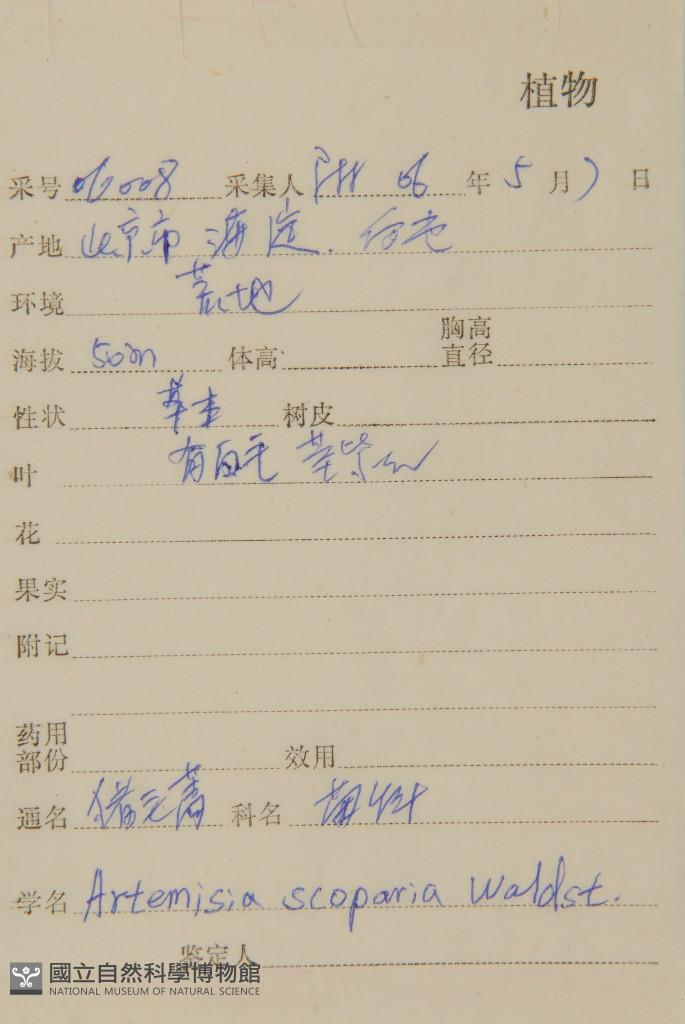 植物
采号 062008 采集人 06 年 5 月 7 日
产地 北京市 海淀.
环境 荒地
海拔 50m 体高 胸高直径
性状 草本 树皮
叶 有白毛 茎紫红
花
果实
附记
药用部份 效用
通名 猪毛蒿 科名 菊科
学名 Artemisia scoparia Waldst.
鉴定人
國立自然科學博物館
NATIONAL MUSEUM OF NATURAL SCIENCE